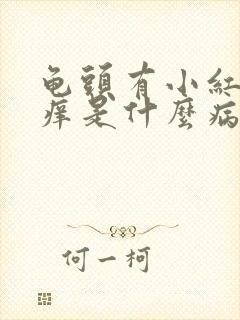 龟頭有小紅
痒是什麽病
何一柯